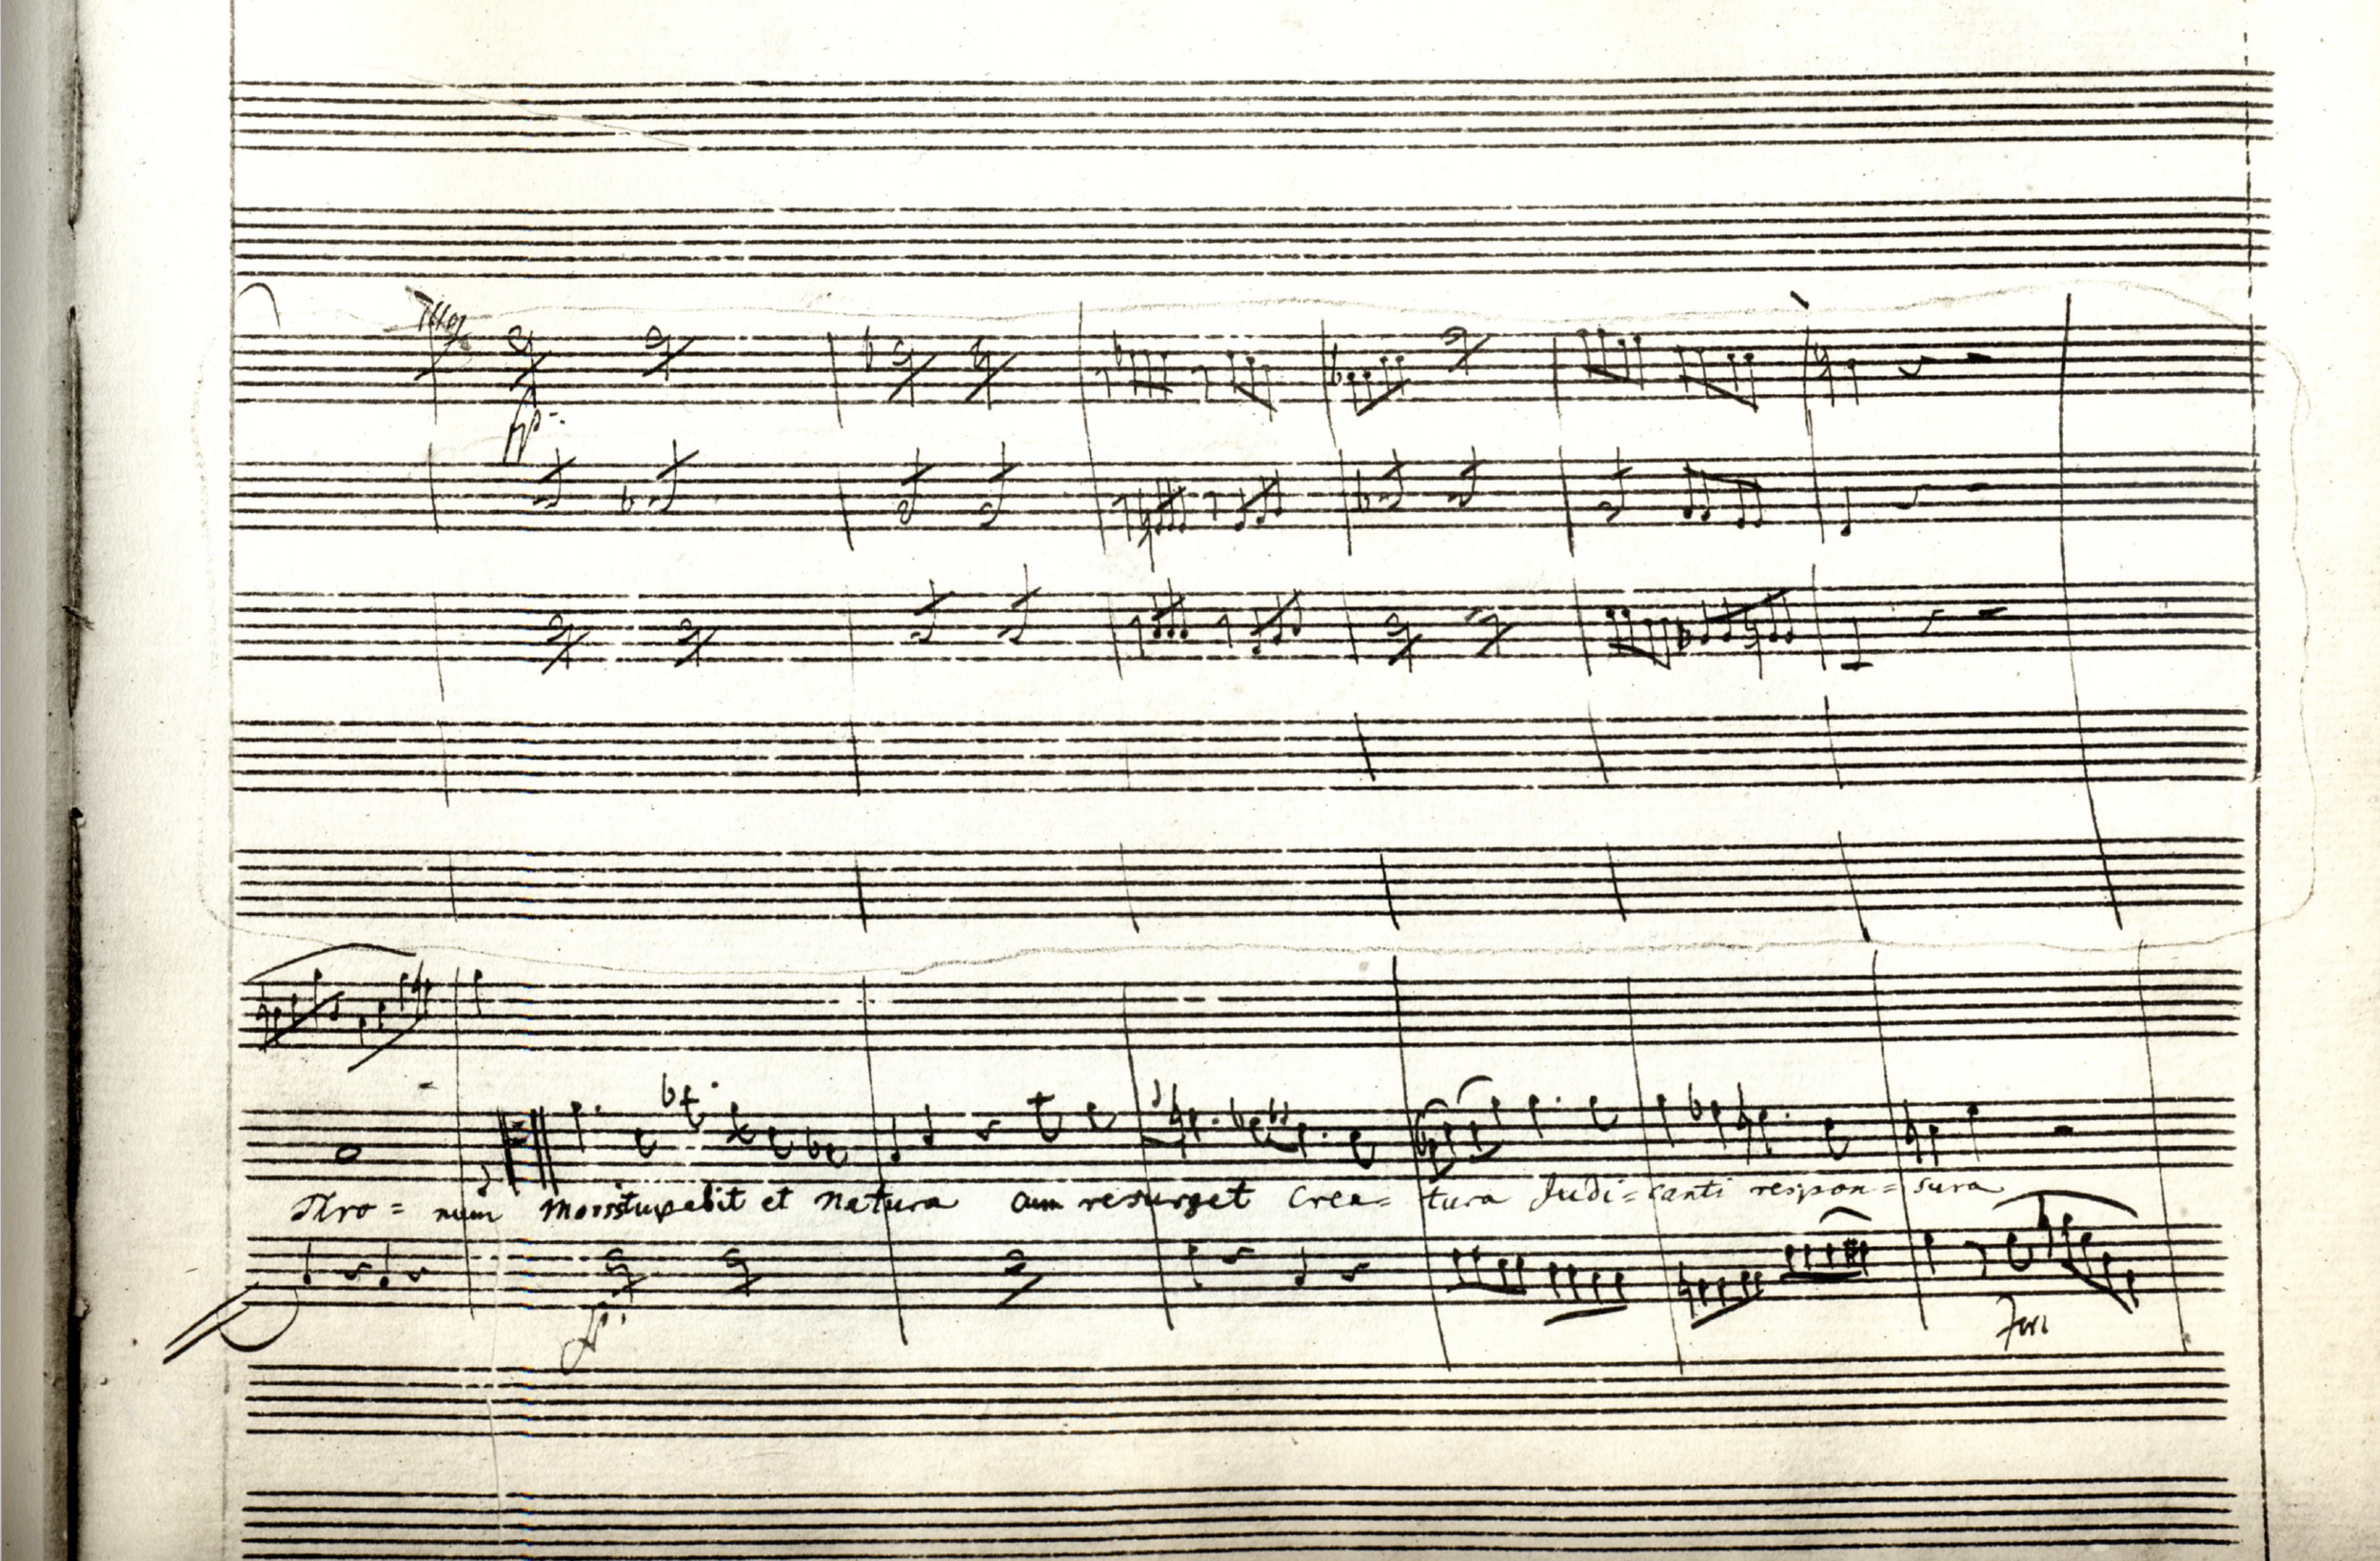 fp:
Thro = num Mors stupebit et natura cum resurget Crea = tura Judi = canti respon = sura
fp:
For